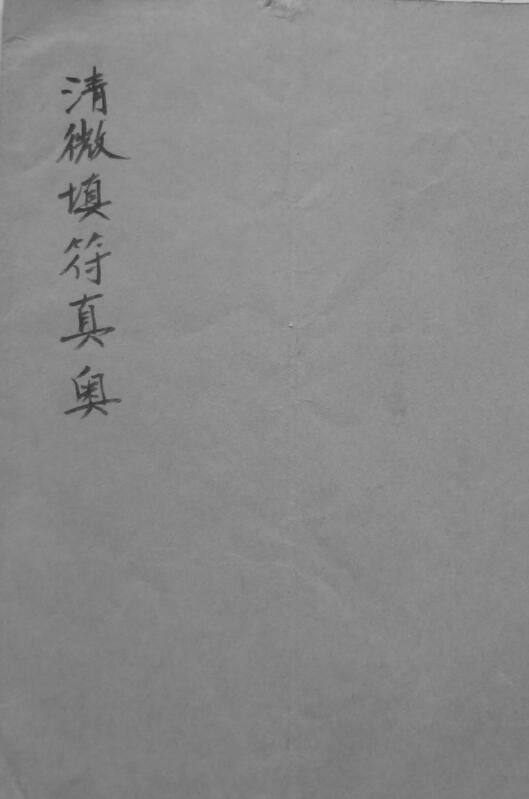 清微填符真奥